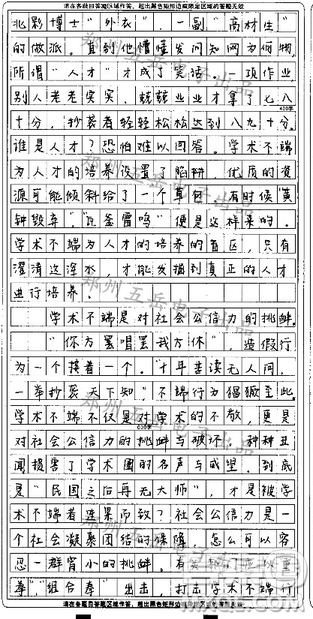 请在各题目答题区域作答，超出黑色矩形边框限定区域的答案无效
北影博士“外衣”，一副“高材生”
的做派，直到他懵懂发问知网为何物，
所谓“人才”才成了笑话。一项作业
别人老老实实、兢兢业业才拿了七八
十分，抄袭者轻轻松松达到八九十分，
谁是人才？恐怕难以回答。学术不端
为人才的培养设置了陷阱，优质的资
源可能倾斜给了一个草包，有时候“黄
钟毁弃，瓦釜雷鸣”便是这样来的。
学术不端为人才的培养的盲区，只有
澄清这淫水，才能发掘到真正的人才
进行培养。
学术不端是对社会公信力的挑衅。
“你方罢唱罢我方休”，造假行
为一个接着一个。“十年苦读无人问，
一举抄袭天下知”不端行为猖獗至此，
学术不端不仅是对学术的不敬，更是
对社会公信力的挑衅与破坏，种种丑
闻损害了学术圈的名声与威望，到底
是“民国之后再无大师”，才是被学
术不端者连累而致？社会公信力是一
个社会凝聚团结的保障，怎么可以容
忍一群宵小的挑衅。
拳“组合拳”出击，打击学术不端行
请在各题目答题区域作答，超出黑色矩形边框限定区域的答案无效